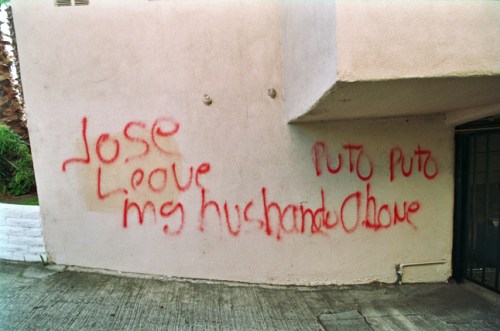 Jose
Leave
my husband alone
Puto Puto